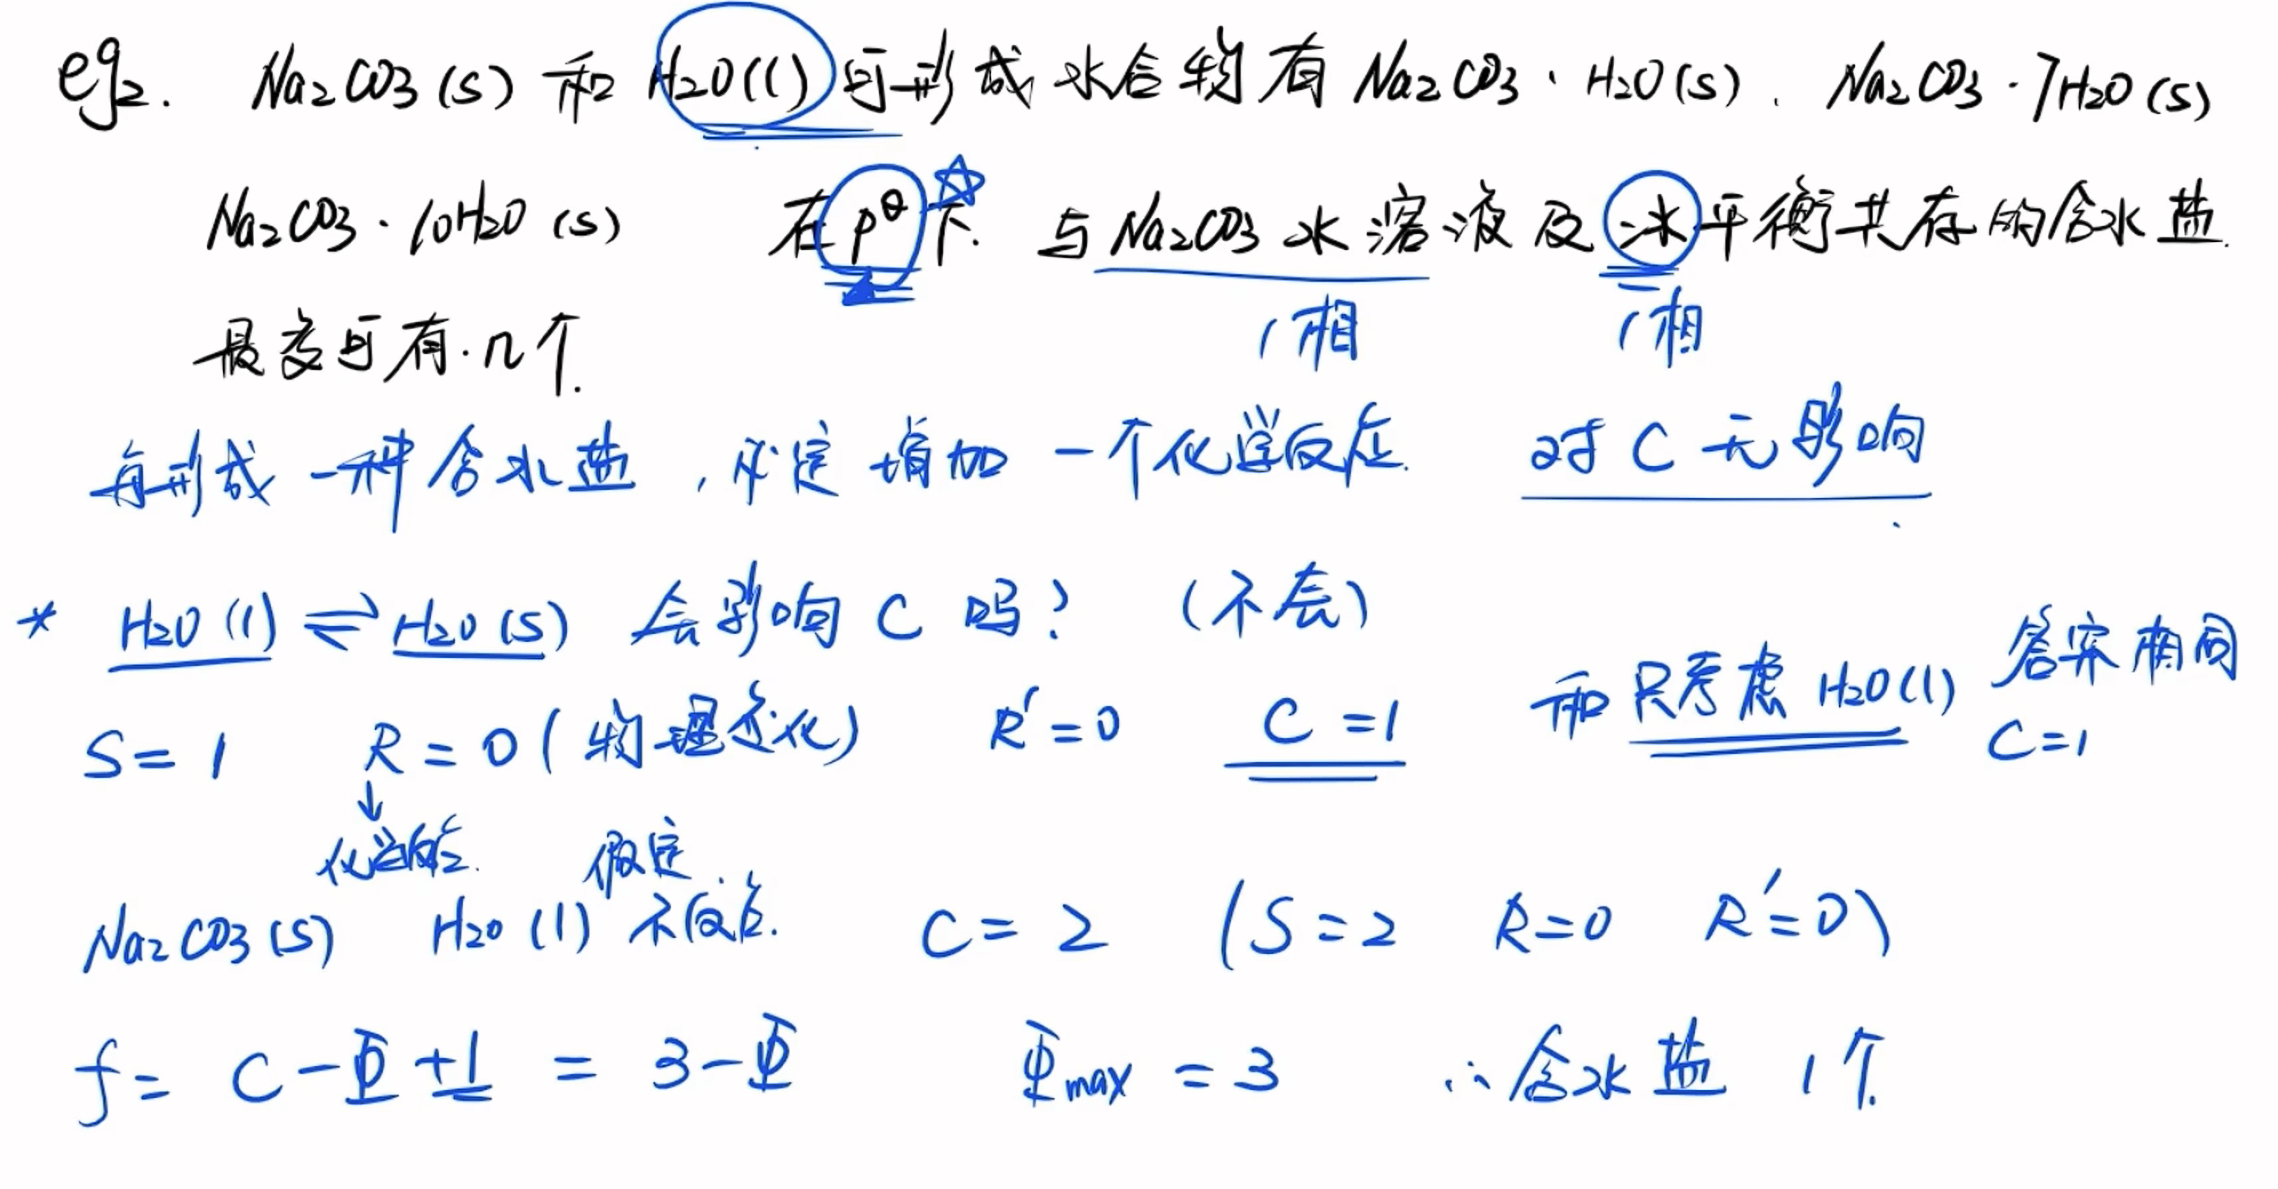 eg2. Na2CO3(s) 和 H2O(l) 可形成水合物有 Na2CO3·H2O(s)、Na2CO3·7H2O(s)
Na2CO3·10H2O(s) 在 p^θ 下. 与Na2CO3水溶液及冰平衡共存的含水盐.
最多可有几个.
1相 1相
每形成一种含水盐，必定增加一个化学反应. 对C无影响
* H2O(l) ⇌ H2O(s) 会影响C吗? (不会)
S=1 R=0(物理变化) R'=0 C=1 和只考虑H2O(l) 答案相同 C=1
↓
化学反应. 假定
Na2CO3(s) H2O(l) 不反应. C=2 (S=2 R=0 R'=0)
f= C-Φ+1 = 3-Φ Φmax=3 ∴含水盐 1个.